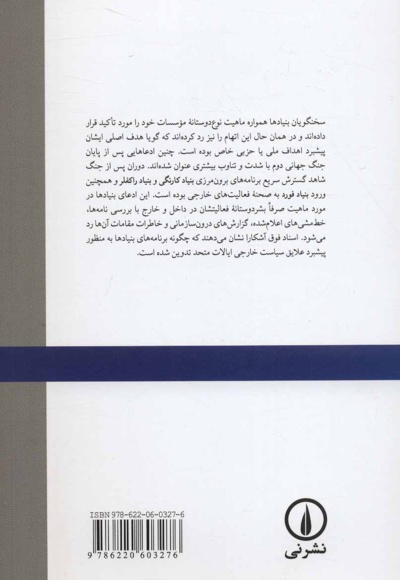 سخنگویان بنیادها همواره ماهیت نوع‌دوستانهٔ مؤسسات خود را مورد تأکید قرار
داده‌اند و در همان حال این اتهام را نیز رد کرده‌اند که گویا هدف اصلی ایشان
پیشبرد اهداف ملی یا حزبی خاص بوده است. چنین ادعاهایی پس از پایان
جنگ جهانی دوم با شدت و تناوب بیشتری عنوان شده‌اند. دوران پس از جنگ
شاهد گسترش سریع برنامه‌های برون‌مرزی بنیاد کارنگی و بنیاد راکفلر و همچنین
ورود بنیاد فورد به صحنهٔ فعالیت‌های خارجی بوده است. این ادعای بنیادها در
مورد ماهیت صرفاً بشردوستانهٔ فعالیتشان در داخل و خارج با بررسی نامه‌ها،
خط‌مشی‌های اعلام‌شده، گزارش‌های درون‌سازمانی و خاطرات مقامات آن‌ها رد
می‌شود. اسناد فوق آشکارا نشان می‌دهند که چگونه برنامه‌های بنیادها به منظور
پیشبرد علایق سیاست خارجی ایالات متحد تدوین شده است.
ISBN 978-622-06-0327-6
9 786220 603276
نشرنی